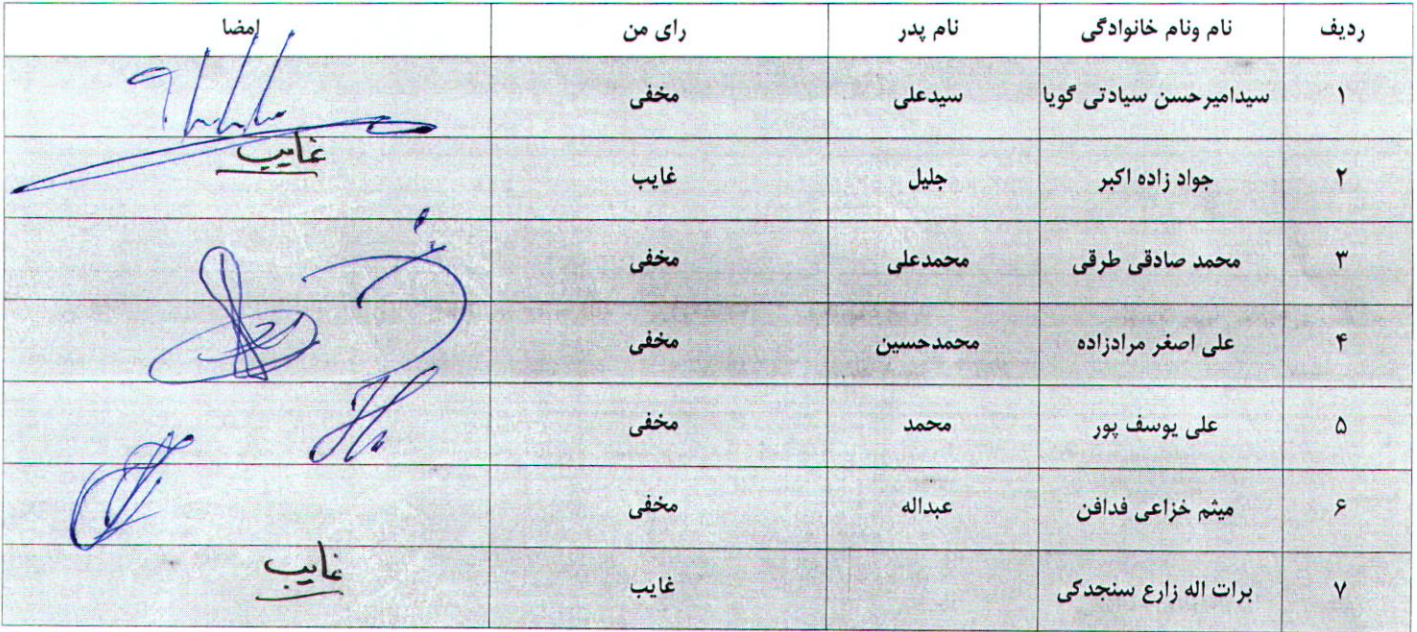 ردیف نام ونام خانوادگی نام پدر رای من امضا
۱ سیدامیرحسن سیادتی گویا سیدعلی مخفی
۲ جواد زاده اکبر جلیل غایب غایب
۳ محمد صادقی طرقی محمدعلی مخفی
۴ علی اصغر مرادزاده محمدحسین مخفی
۵ علی یوسف پور محمد مخفی
۶ میثم خزاعی فدافن عبداله مخفی
۷ برات اله زارع سنجدکی غایب غایب